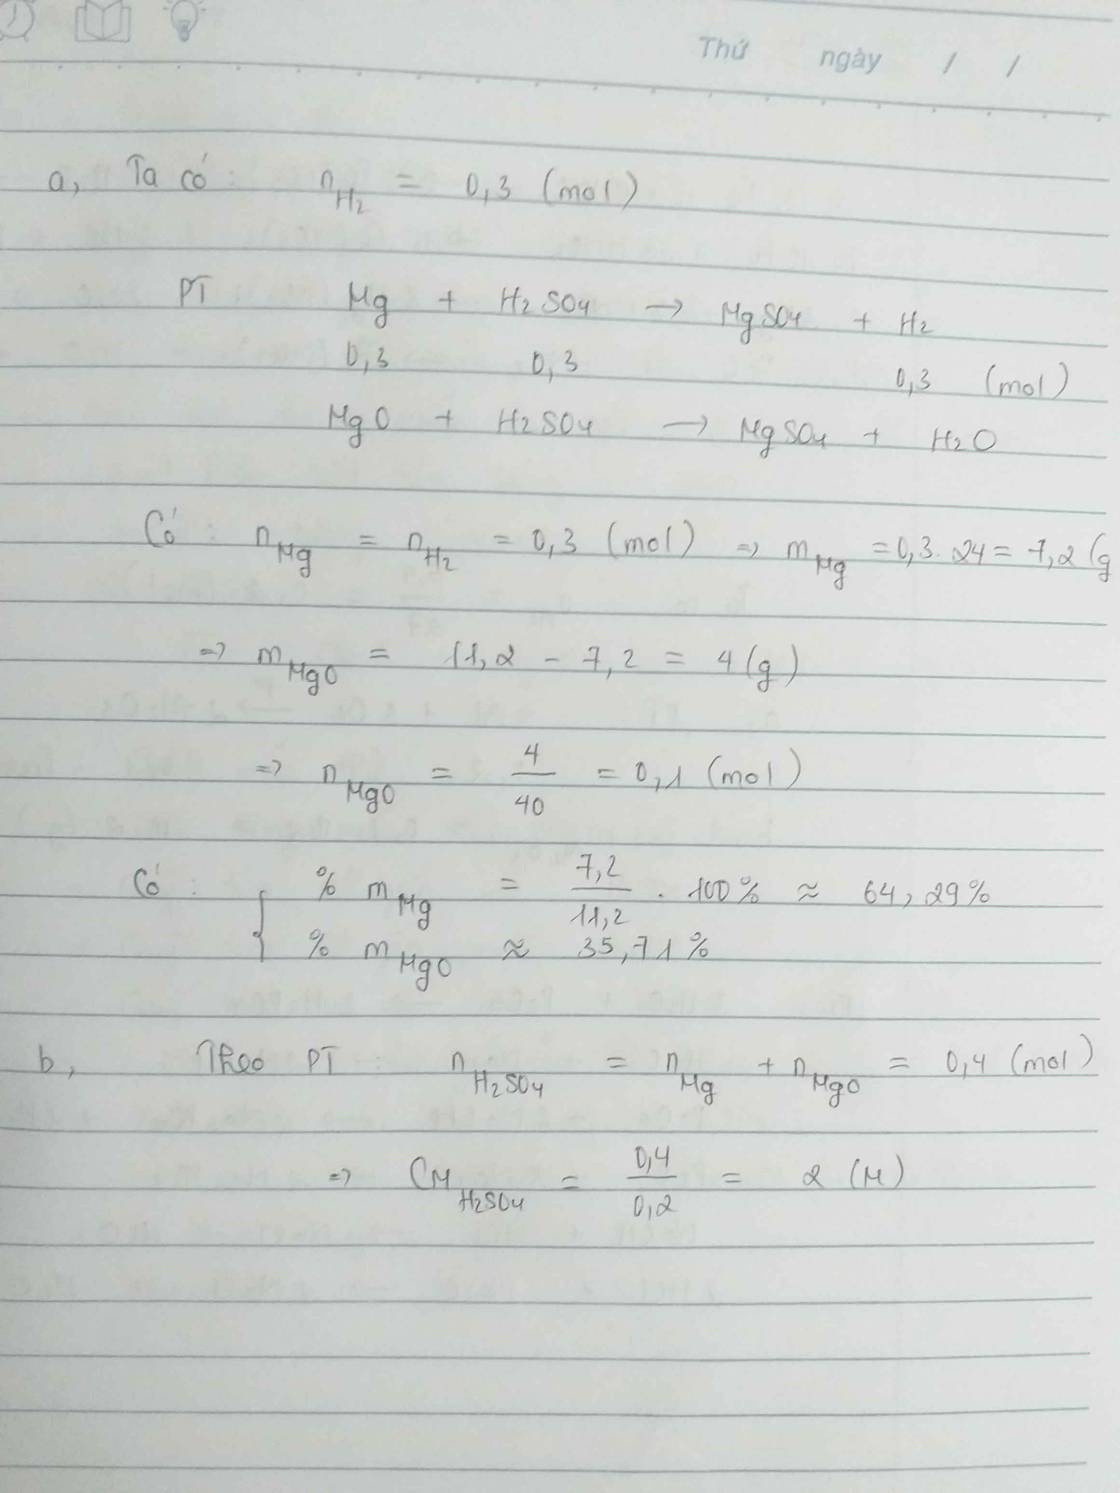 Thứ ngày / /
a, Ta có: n H2 = 0,3 (mol)
PT Mg + H2SO4 → MgSO4 + H2
0,3 0,3 0,3 (mol)
MgO + H2SO4 → MgSO4 + H2O
Có: n Mg = n H2 = 0,3 (mol) => m Mg = 0,3. 24 = 7,2 (g
=> m MgO = 11,2 - 7,2 = 4 (g)
=> n MgO = 4/40 = 0,1 (mol)
Có: { % m Mg = 7,2/11,2 . 100% ≈ 64,29%
% m MgO ≈ 35,71%
b, Theo PT: n H2SO4 = n Mg + n MgO = 0,4 (mol)
=> CM H2SO4 = 0,4/0,2 = 2 (M)